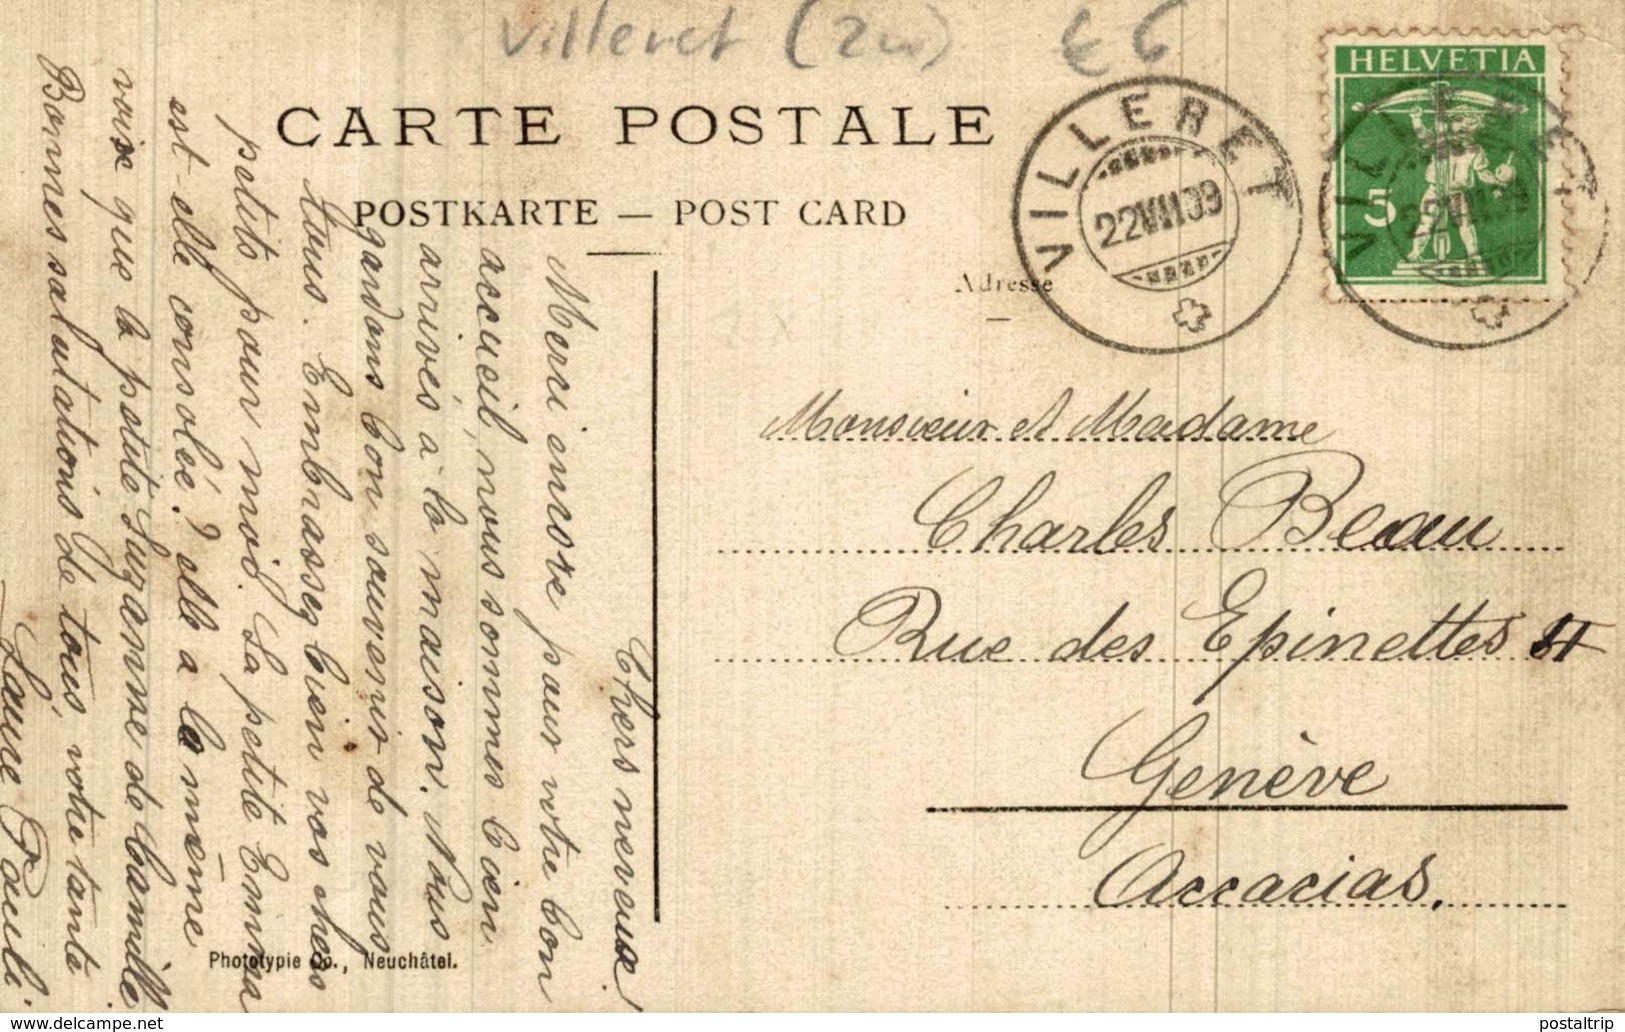 Villeret (2w) € 6
CARTE POSTALE
POSTKARTE — POST CARD
Adresse
VILLERET
22VII09
HELVETIA
5
VILLERET
22VII09
Monsieur et Madame
Charles Beau
Rue des Epinettes
Genève
Accacias.
Chers neveux!
Merci encore pour votre bon
accueil, nous sommes bien
arrivés à la maison. Nous
gardons bon souvenir de vous
tous. Embrassez bien vos chers
petits pour moi. La petite Emma
est-elle consolée? elle a la même
voix que la petite Suzanne de Camille
Bonnes salutations de tous, votre tante
Laure Pauli
Phototypie Co., Neuchâtel.
www.delcampe.net
postaltrip